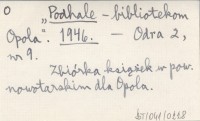 O
„Podhale – bibliotekom
Opola". 1946. – Odra 2,
nr 9.
Zbiórka książek w pow.
nowotarskim dla Opola.